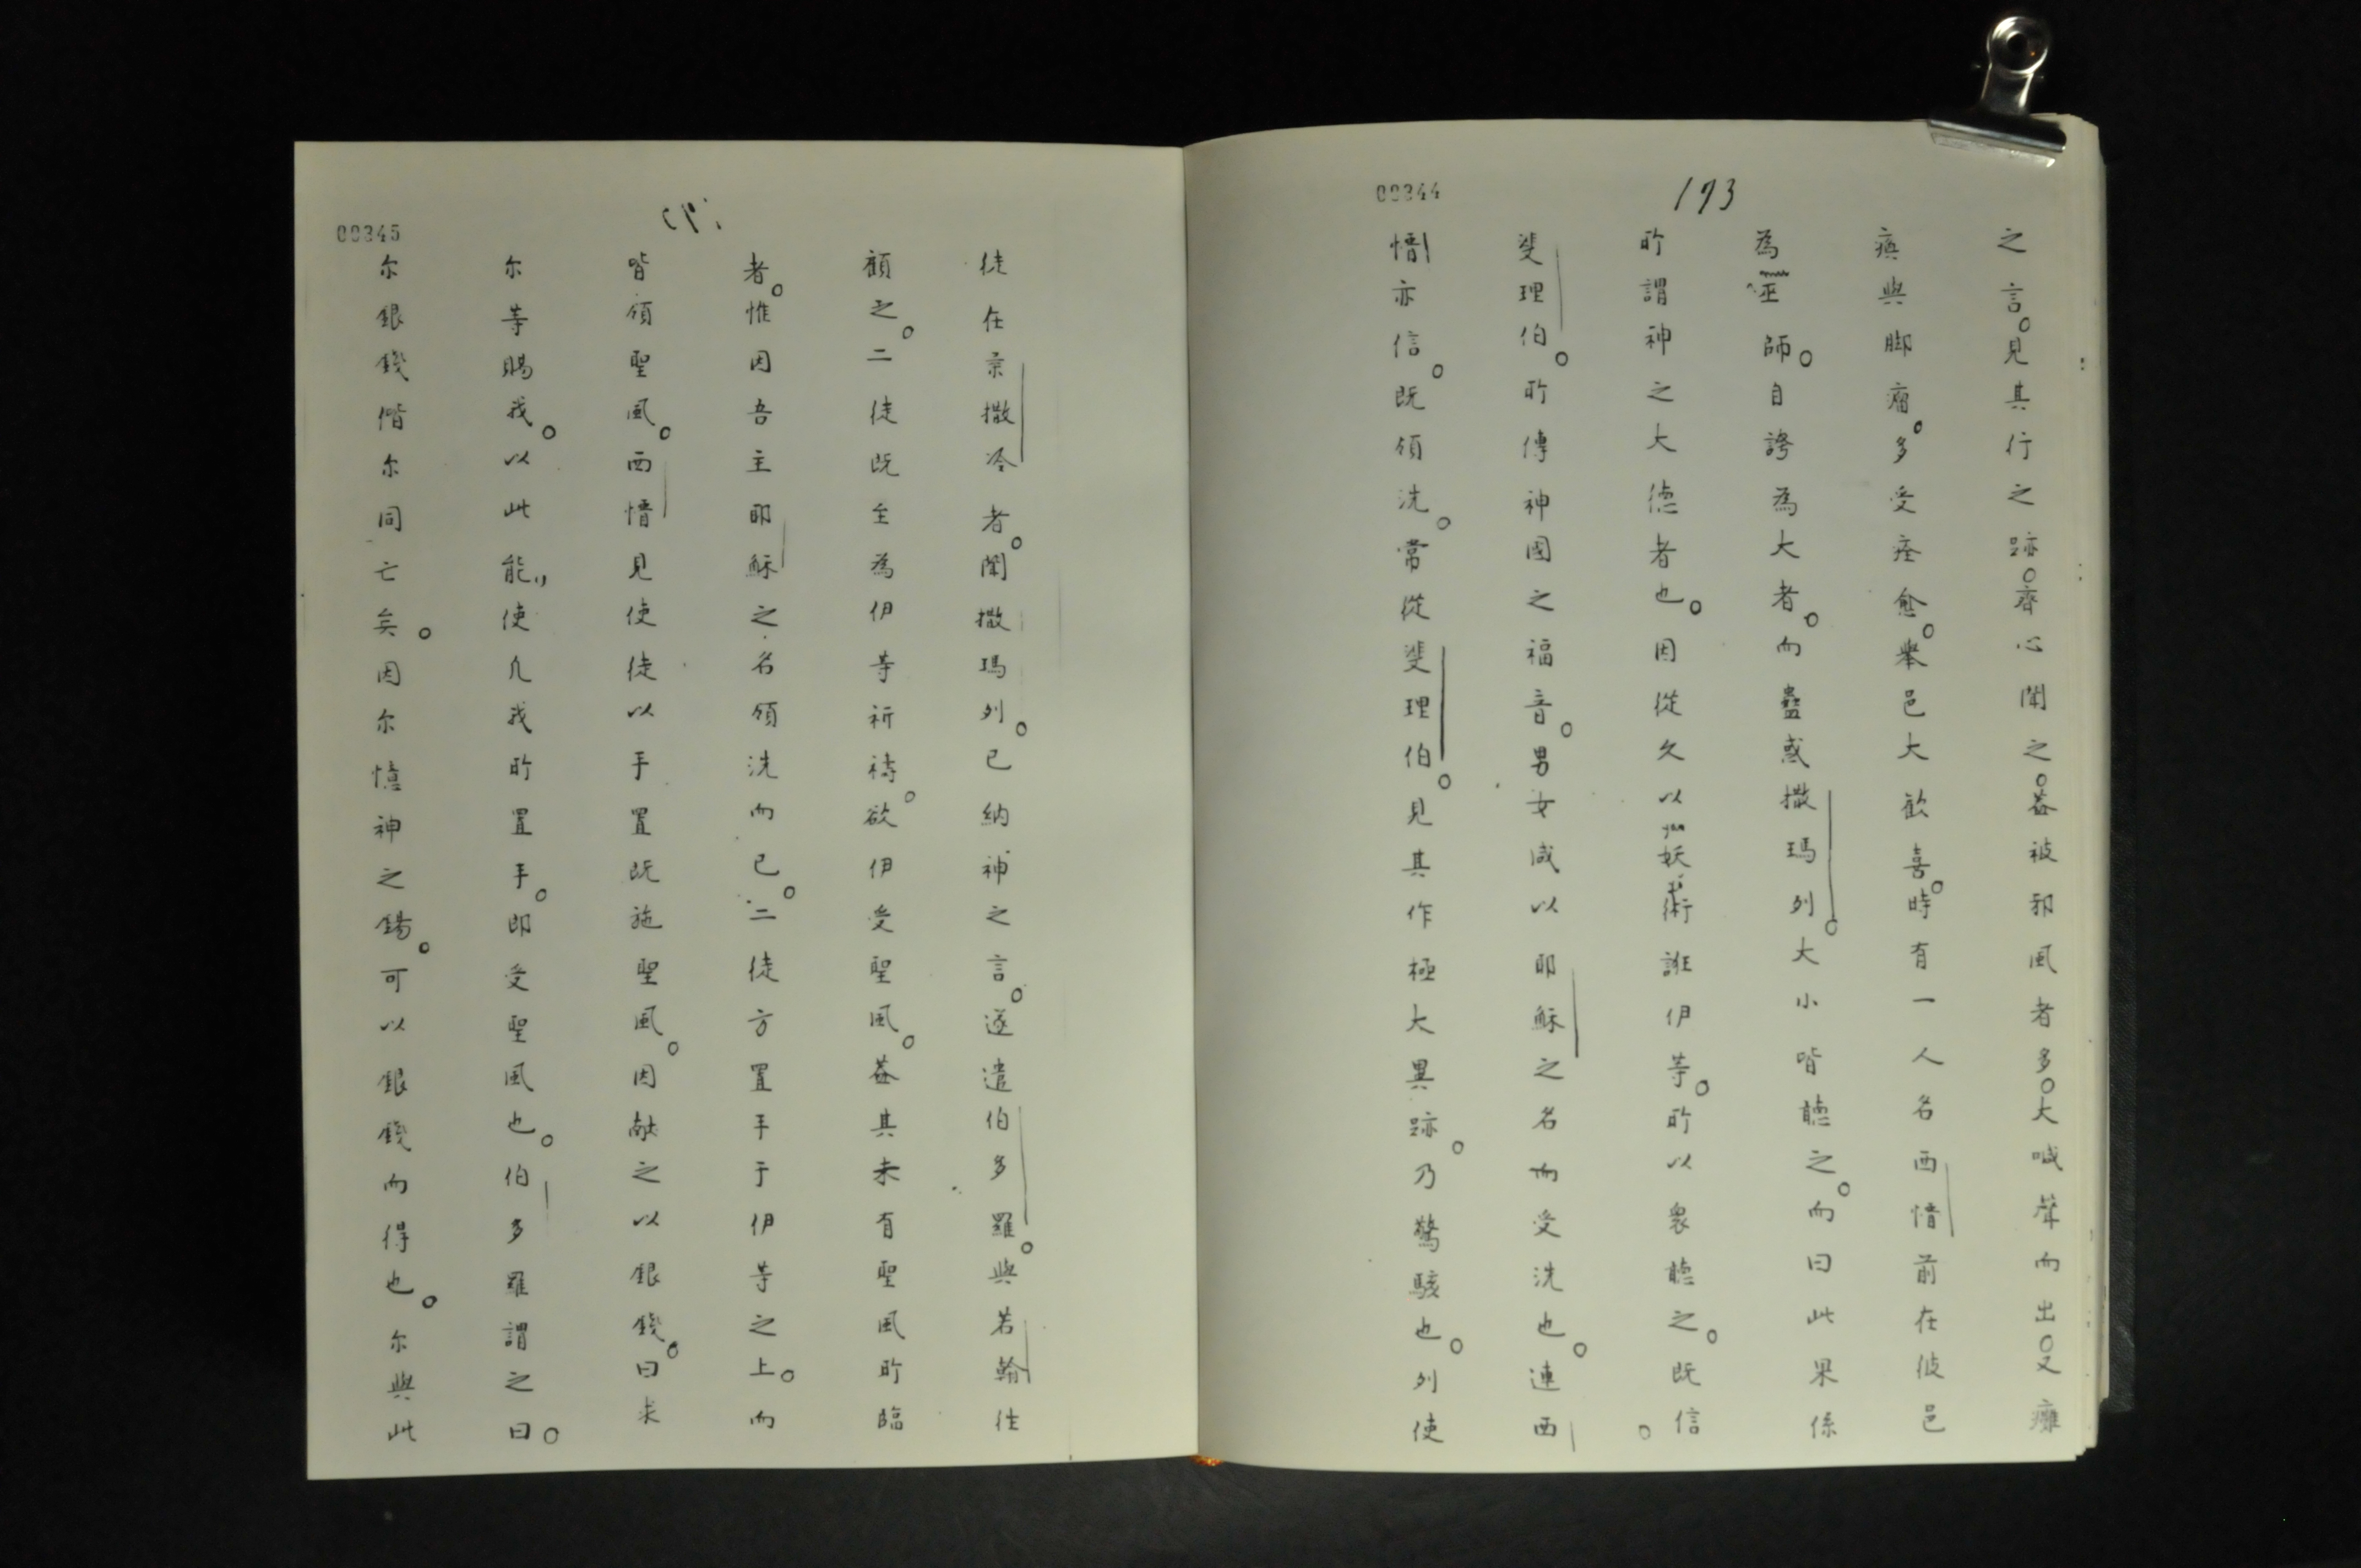 00344
173
之言。見其行之跡。齊心聞之。蓋被邪風者多。大喊聲而出。又癱
瘓與脚瘤。多受痊愈。舉邑大歡喜。時有一人名西㥦前在彼邑
為巫師。自誇為大者。而蠱惑撒瑪列。大小皆聽之。而曰此果係
所謂神之大德者也。因從久以妖術誑伊等。所以衆聽之。既信。
斐理伯。所傳神國之福音。男女咸以耶穌之名而受洗也。連西
㥦亦信。既領洗。常從斐理伯。見其作極大異跡。乃驚駭也。列使
00345
徒在柰撒冷者。聞撒瑪列。已納神之言。遂遣伯多羅。與若翰往
顧之。二徒既至為伊等祈禱。欲伊受聖風。蓋其未有聖風所臨
者。惟因吾主耶穌之名領洗而已。二徒方置手于伊等之上。而
皆領聖風。西㥦見使徒以手置既施聖風。因献之以銀錢。曰求
尔等賜我。以此能，使凡我所置手。即受聖風也。伯多羅謂之曰。
尔銀錢偕尔同亡矣。因尔憶神之錫。可以銀錢而得也。尔與此